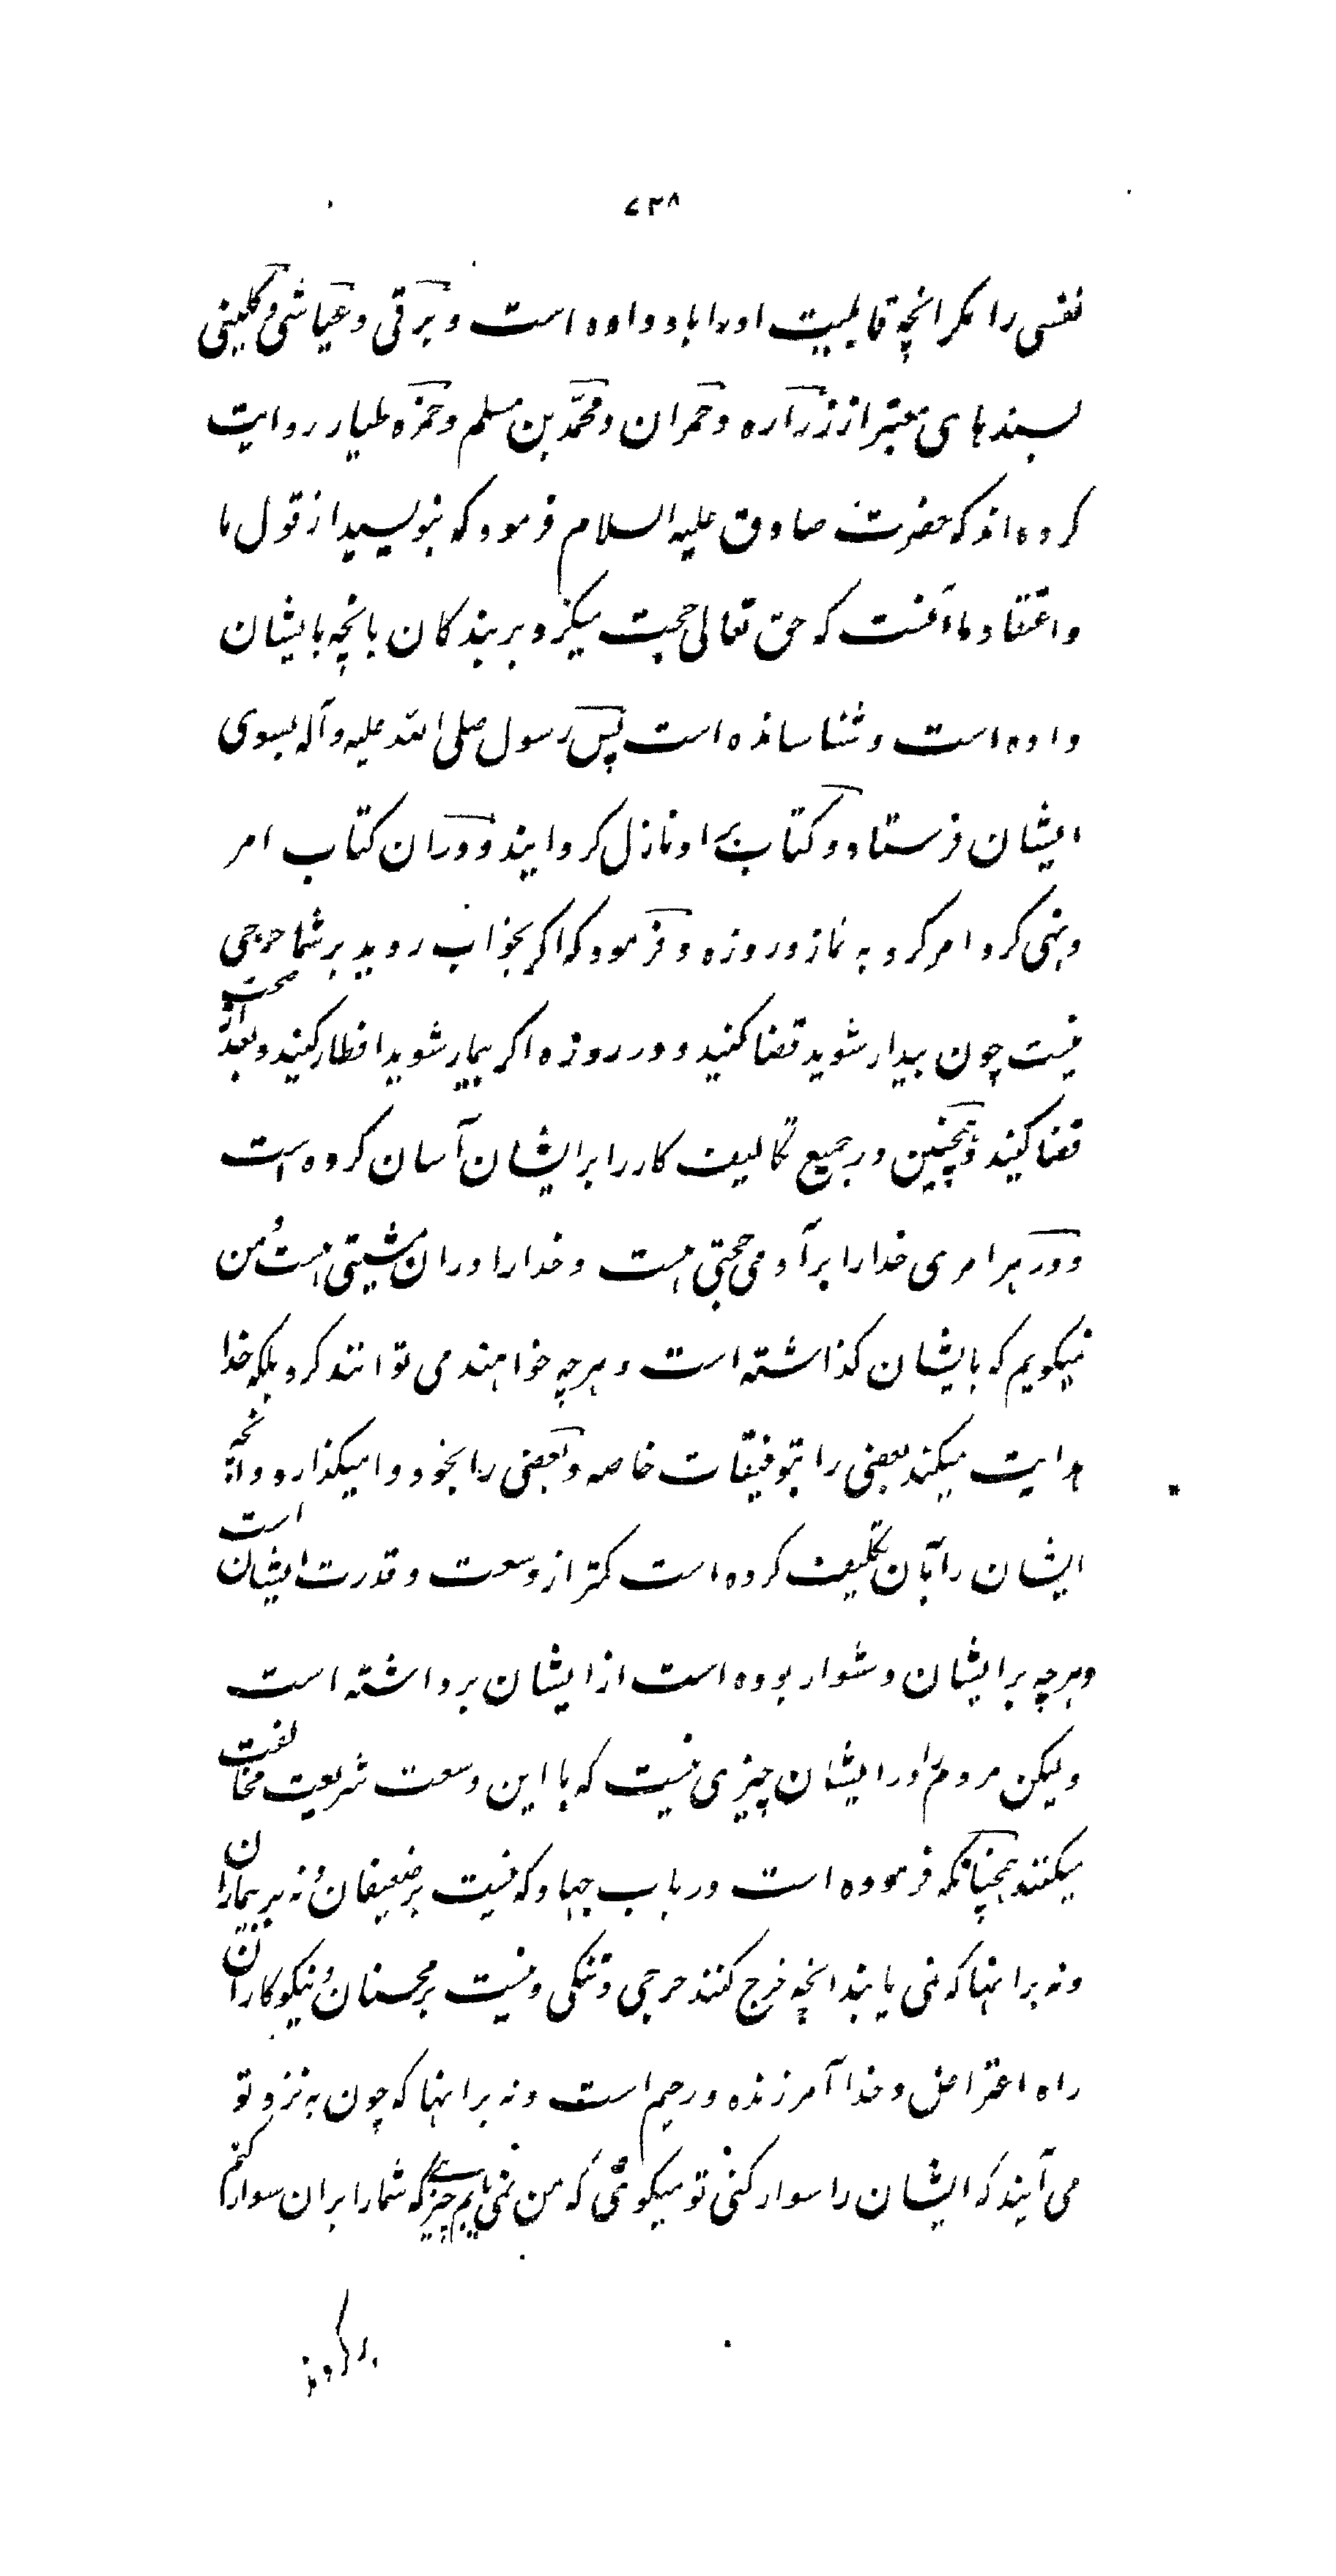 ۷۳۸
نفسی را مگر انچه قابلیت او را باو داده است و برقی و عیاشی و کلینی
بسندهای معتبر از زراره و حمران و محمّد بن مسلم و حمزه طیار روایت
کرده‌اند که حضرت صادق علیه السلام فرمود که بنویسید از قول ما
و اعتقاد ما آنست که حق تعالی حجت میگیرد بر بندگان بانچه بایشان
داده است و شناسانده است پس رسول صلی الله علیه و آله بسوی
ایشان فرستاد و کتاب بر او نازل گردانید و در ان کتاب امر
و نهی کرد امر کرد به نماز و روزه و فرمود که اگر بخواب روید بر شما حرجی
نیست چون بیدار شوید قضا کنید و در روزه اگر بیمار شوید افطار کنید و بعد از صحت
قضا کنید و همچنین در جمیع تکالیف کار را بر ایشان آسان کرده است
و در هر امری خدا را بر آدمی حجتی هست و خدا را در ان مشیتی هست و من
نمیگویم که بایشان گذاشته است و هرچه خواهند می توانند کرد بلکه خدا
هدایت میکند بعضی را بتوفیقات خاصه و بعضی را بخود وامیگذارد و آنچه
ایشان را بآن تکلیف کرده است کمتر از وسعت و قدرت ایشان است
و هرچه بر ایشان دشوار بوده است از ایشان برداشته است
ولیکن مردم در ایشان چیزی نیست که با این وسعت شریعت مخالفت
میکنند همچنانکه فرموده است در باب جهاد که نیست بر ضعیفان و نه بر بیماران
و نه بر انها که نمی یابند انچه خرج کنند حرجی و تنگی و نیست بر محسنان و نیکوکاران
راه اعتراض و خدا آمرزنده و رحیم است و نه بر انها که چون به نزد تو
می آیند که ایشان را سوار کنی تو میگوئی که من نمی یابم چیزی که شما را بر ان سوار کنم
برگردند